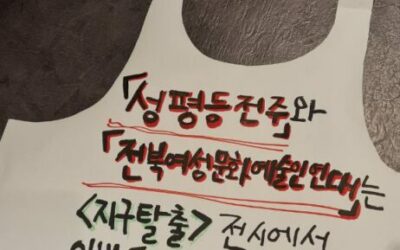 「성평등전주」와
「전북여성문화예술인연대」는
<지구탈출> 전시에서